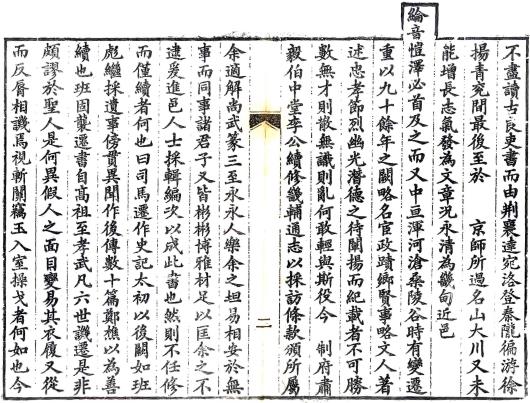 不盡讀古良史書而由荆襄達宛洛登秦隴徧游徐
揚青兗間最後至於　京師所過名山大川又未
能增長志氣發為文章況永清為畿甸近邑
綸音愷澤必首及之而又中亘渾河滄桑陵谷時有變遷
重以九十餘年之闕略名宦政蹟鄉賢事略文人著
述忠孝節烈幽光潛德之待闡揚而紀載者不可勝
數無才則散無識則亂何敢輕與斯役今　制府肅
毅伯中堂李公續修畿輔通志以採訪條款頒所屬
二
余適解尚武篆三至永永人樂余之坦易相安於無
事而同事諸君子又皆彬彬博雅材足以匡余之不
逮爰進邑人士採輯編次以成此書也然則不任修
而僅續者何也曰司馬遷作史記太初以後闕如班
彪繼採遺事傍貫異聞作後傳數十篇鄭樵以為善
續也班固襲遷書自高祖至孝武凡六世譏遷是非
頗謬於聖人是何異假人之面目變易其衣履又從
而反脣相譏焉視斬關竊玉入室操戈者何如也今